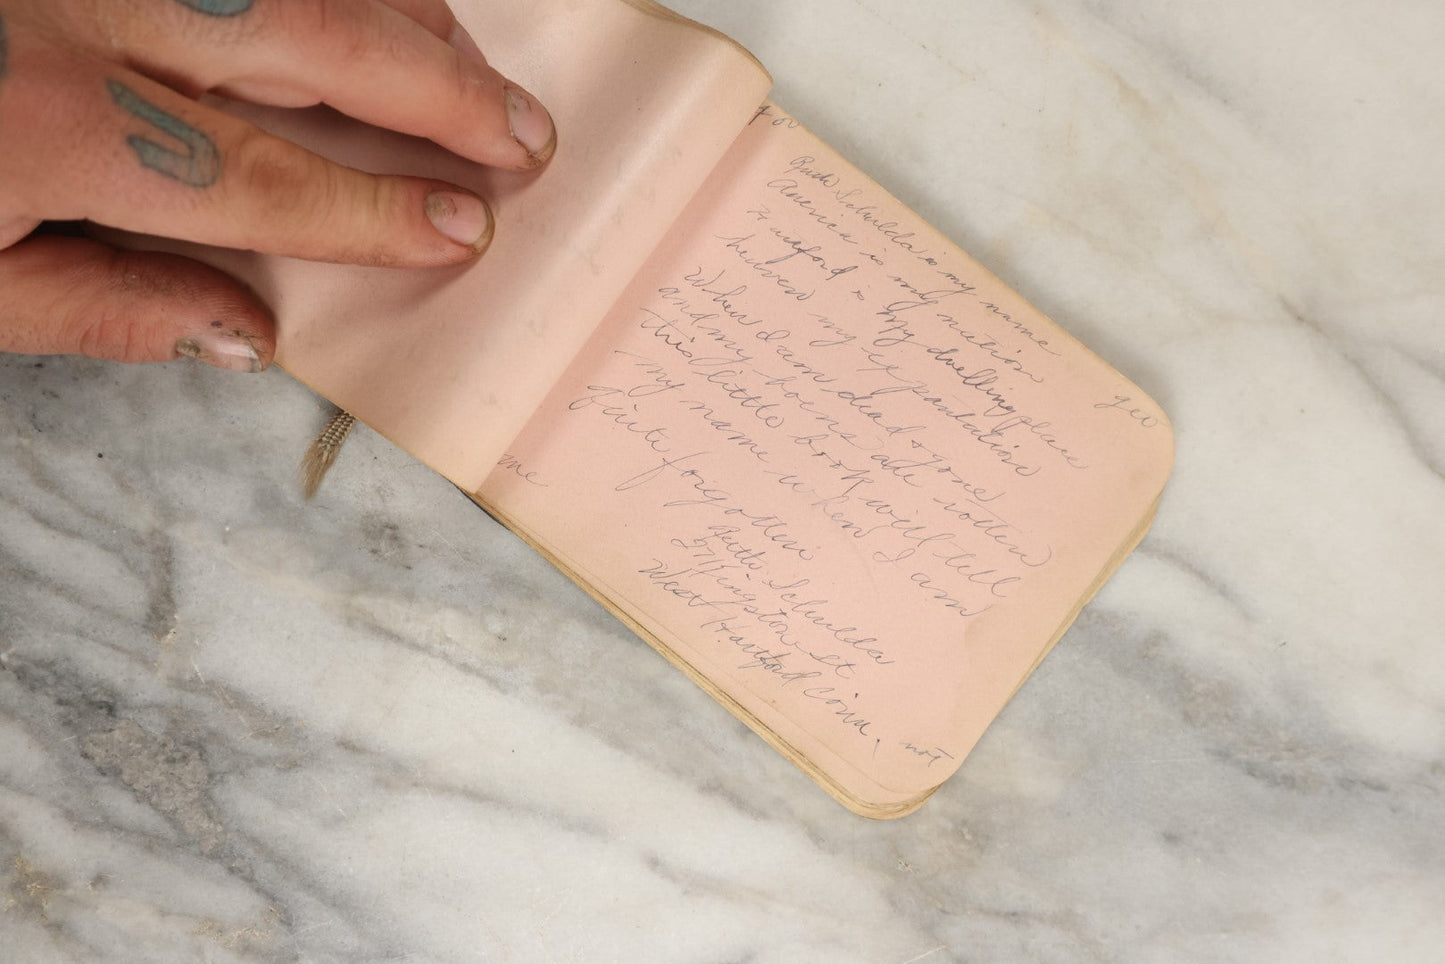 for
Ruth Schulda is my name
America is my nation
Hartford is my dwelling place
heaven my expectation
When I am dead & gone
and my bones are rotten
this little book will tell
my name when I am
quite forgotten
Ruth Schulda
27 Kingston St
West Hartford Conn.
get
me
not